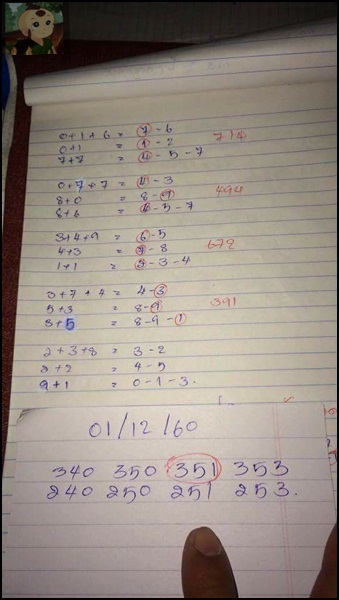 0+1+6 = 7-6
0+1 = 1-2 714
7+7 = 4-5-7
0+7+7 = 4-3
8+0 = 8-9 494
8+6 = 4-5-7
3+4+9 = 6-5
4+3 = 7-8 672
1+1 = 2-3-4
3+7+4 = 4-3
5+3 = 8-9 391
3+5 = 8-9-1
2+3+8 = 3-2
2+2 = 4-5
9+1 = 0-1-3.
01/12/60
340 350 351 353
240 250 251 253.